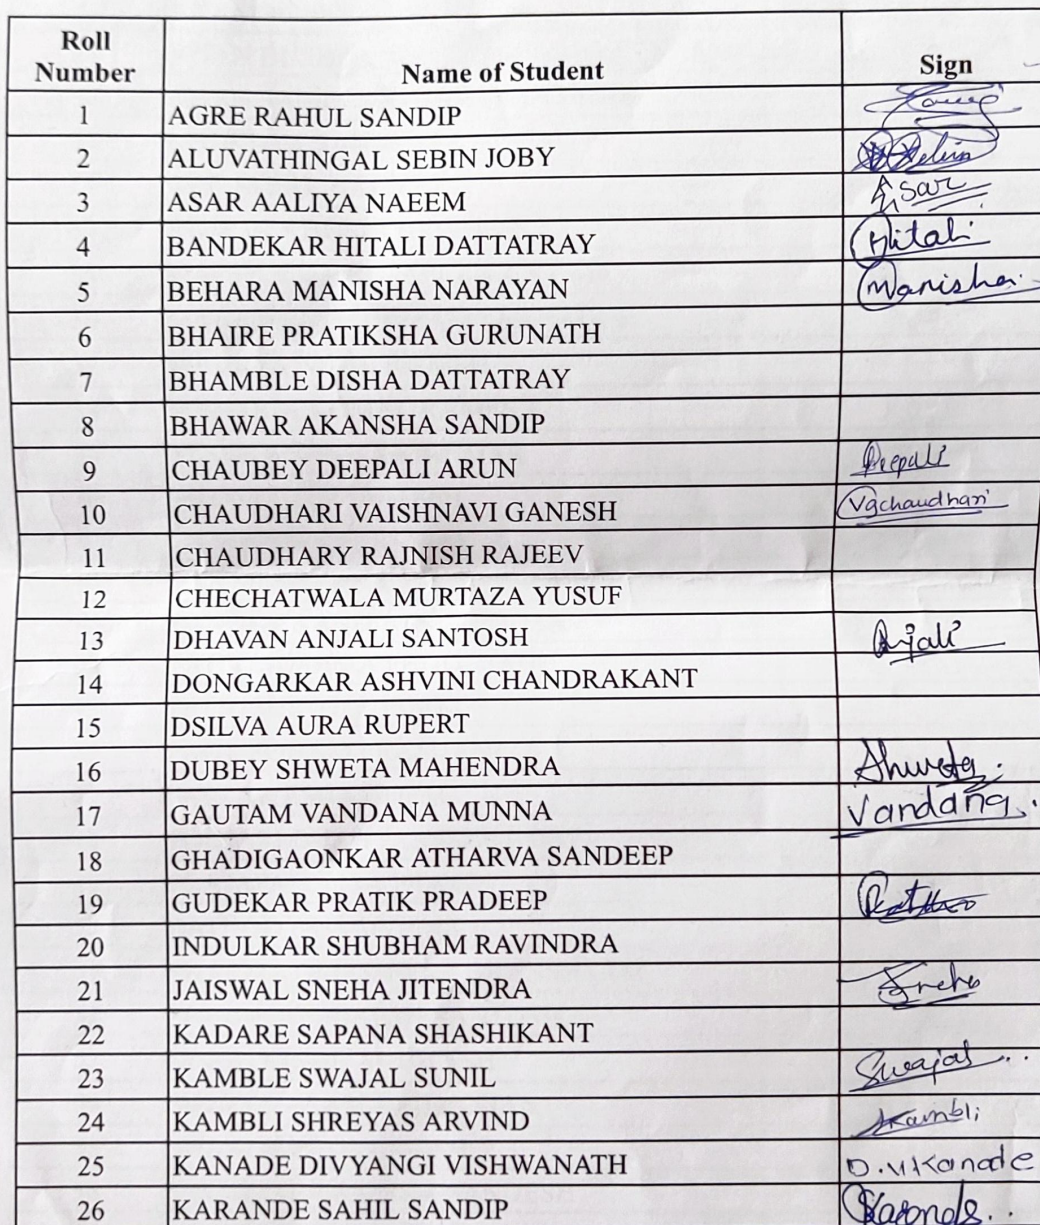 Roll Number Name of Student Sign
1 AGRE RAHUL SANDIP
2 ALUVATHINGAL SEBIN JOBY Sebin
3 ASAR AALIYA NAEEM Asar
4 BANDEKAR HITALI DATTATRAY Hitali
5 BEHARA MANISHA NARAYAN Manisha.
6 BHAIRE PRATIKSHA GURUNATH
7 BHAMBLE DISHA DATTATRAY
8 BHAWAR AKANSHA SANDIP
9 CHAUBEY DEEPALI ARUN Deepali
10 CHAUDHARI VAISHNAVI GANESH Vgchaudhari
11 CHAUDHARY RAJNISH RAJEEV
12 CHECHATWALA MURTAZA YUSUF
13 DHAVAN ANJALI SANTOSH Anjali
14 DONGARKAR ASHVINI CHANDRAKANT
15 DSILVA AURA RUPERT
16 DUBEY SHWETA MAHENDRA Shweta.
17 GAUTAM VANDANA MUNNA Vandana.
18 GHADIGAONKAR ATHARVA SANDEEP
19 GUDEKAR PRATIK PRADEEP
20 INDULKAR SHUBHAM RAVINDRA
21 JAISWAL SNEHA JITENDRA Sneha
22 KADARE SAPANA SHASHIKANT
23 KAMBLE SWAJAL SUNIL Swajal
24 KAMBLI SHREYAS ARVIND Kambli
25 KANADE DIVYANGI VISHWANATH D.V.Kanade
26 KARANDE SAHIL SANDIP